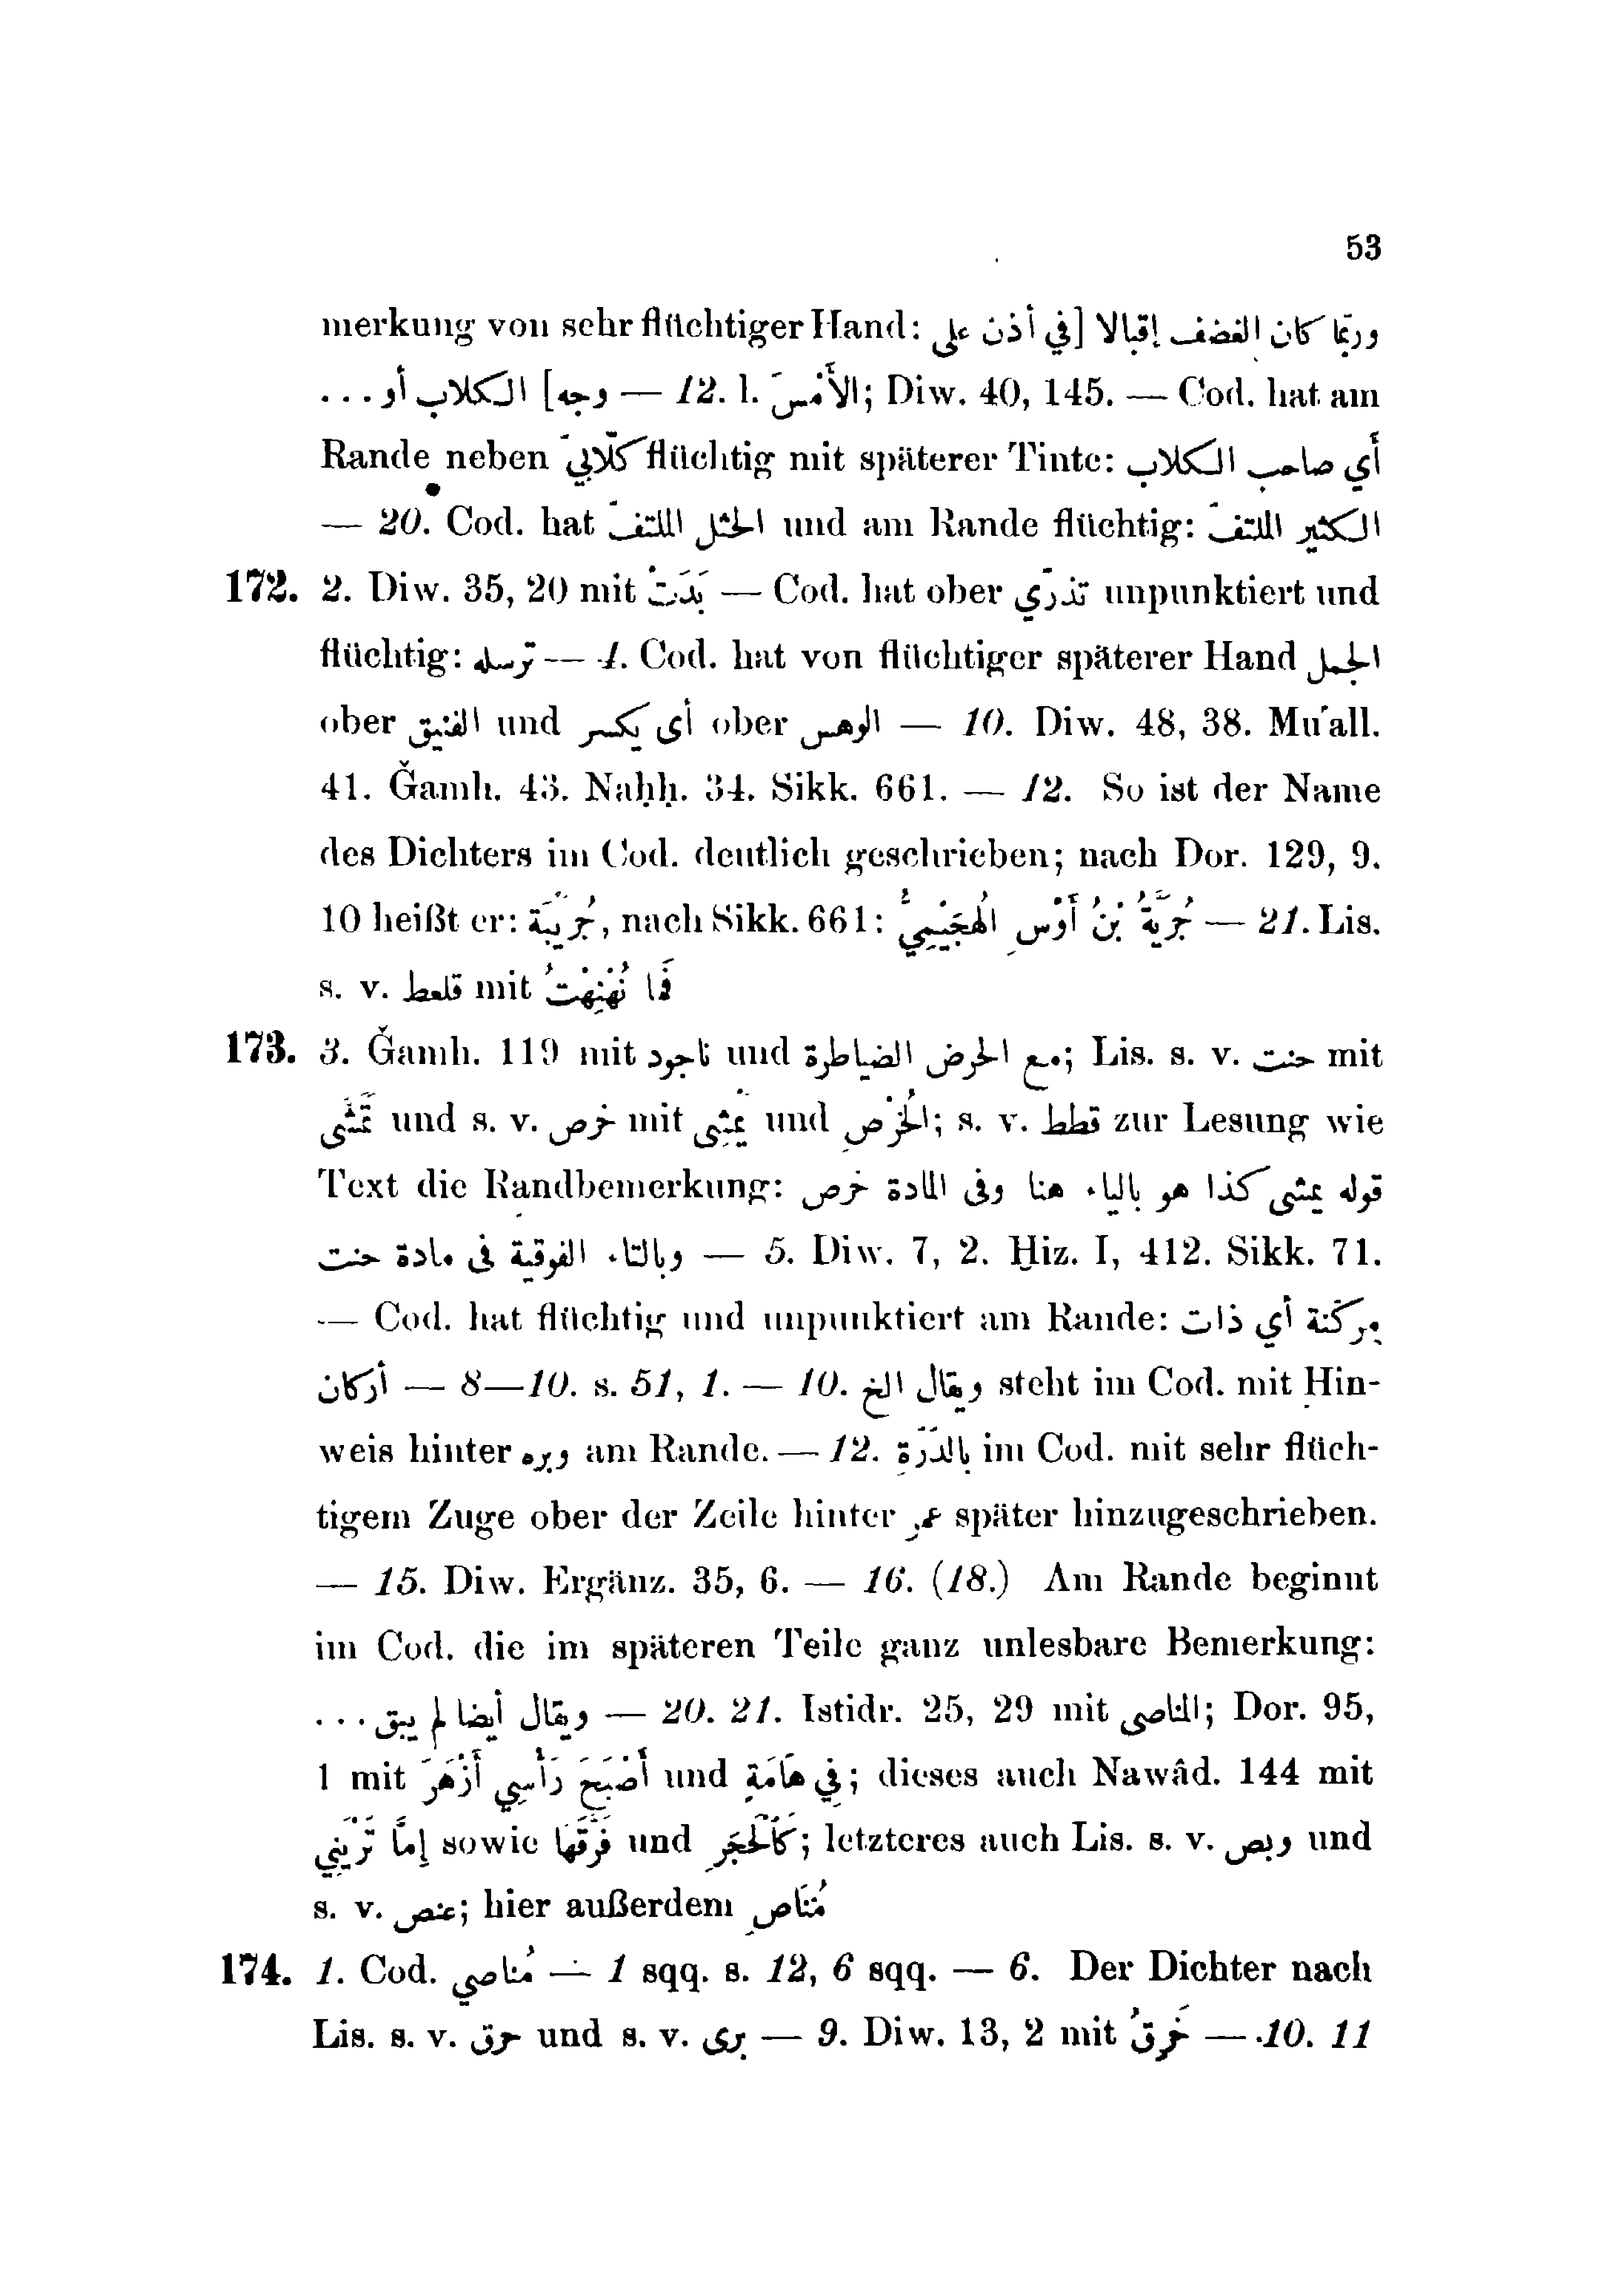 53
merkung von sehr flüchtiger Hand: وربّما كان الغضف إقبالا [في أذن على
وجه] الكلاب أو ... — 12. l. الأَمْسَ; Diw. 40, 145. — Cod. hat am
Rande neben كَلّابيّ flüchtig mit späterer Tinte: أي صاحب الكلاب
— 20. Cod. hat الخثل الملتفّ und am Rande flüchtig: الكثير الملتفّ
172. 2. Diw. 35, 20 mit بَدَتْ — Cod. hat ober تذرّي unpunktiert und
flüchtig: ترسله — 4. Cod. hat von flüchtiger späterer Hand الجمل
ober الفنيق und أى يكسر ober الوهس — 10. Diw. 48, 38. Mu'all.
41. Ǧamh. 43. Naḥḥ. 34. Sikk. 661. — 12. So ist der Name
des Dichters im Cod. deutlich geschrieben; nach Dor. 129, 9.
10 heißt er: جُرَيْبَة, nach Sikk. 661: جُرَيَّةُ بْنُ أَوْسٍ الهُجَيْمِيُّ — 21. Lis.
s. v. قلعط mit فَمَا نُهْنِهْتُ
173. 3. Ǧamh. 119 mit ناجود und مع الحرض الضياطرة; Lis. s. v. حنت mit
تَمَشَّى und s. v. خرص mit يَمْشِى und الخُرْصِ; s. v. قطط zur Lesung wie
Text die Randbemerkung: قوله يمشى كذا هو بالياء هنا وفى المادة خرص
وبالتاء الفوقية فى مادة حنت — 5. Diw. 7, 2. Ḫiz. I, 412. Sikk. 71.
— Cod. hat flüchtig und unpunktiert am Rande: مركّنة أي ذات
أركان — 8—10. s. 51, 1. — 10. ويقال الخ steht im Cod. mit Hin-
weis hinter وبره am Rande. — 12. بِالدِّرَّة im Cod. mit sehr flüch-
tigem Zuge ober der Zeile hinter عمر später hinzugeschrieben.
— 15. Diw. Ergänz. 35, 6. — 16. (18.) Am Rande beginnt
im Cod. die im späteren Teile ganz unlesbare Bemerkung:
ويقال أيضا لم يبق ... — 20. 21. Istidr. 25, 29 mit المناصى; Dor. 95,
1 mit أَصْبَحَ رَأْسِي أَزْهَرَ und فِي هَامَةٍ; dieses auch Nawâd. 144 mit
إِمَّا تَرَيْنِي sowie فَرَّقَهَا und كَالْحَجَرِ; letzteres auch Lis. s. v. وبص und
s. v. عنص; hier außerdem مُنَاصٍ
174. 1. Cod. مُناصي — 1 sqq. s. 12, 6 sqq. — 6. Der Dichter nach
Lis. s. v. حرق und s. v. برى — 9. Diw. 13, 2 mit خَرِقُ — 10. 11